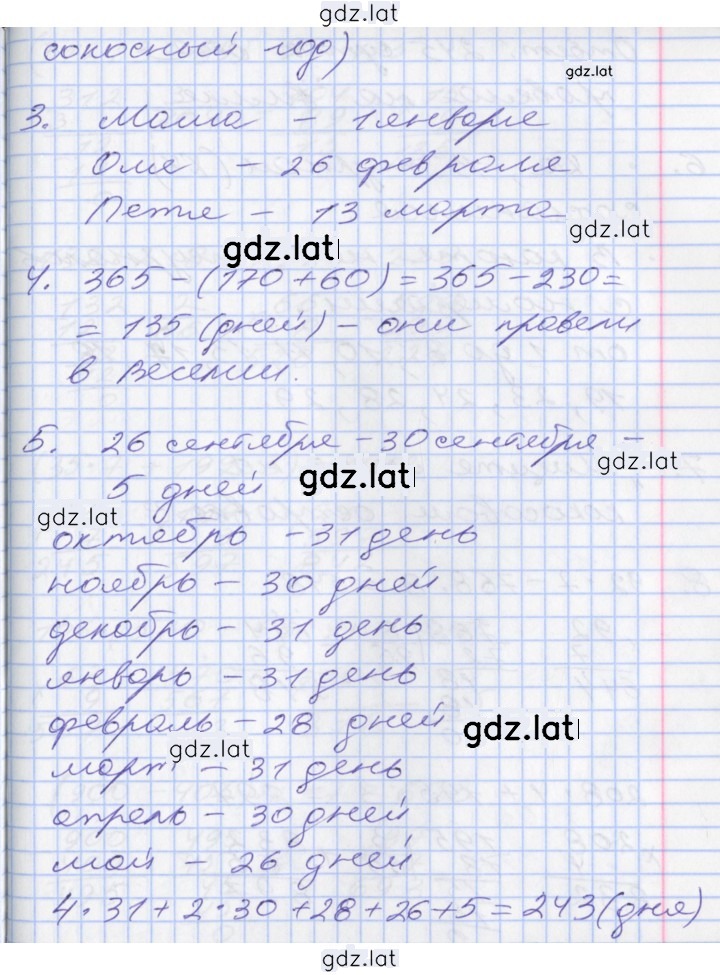 gdz.lat
сокосный год)
gdz.lat
3. Маша – 1 января
Оля – 26 февраля
Петя – 13 марта
gdz.lat
gdz.lat
4. 365 – (170 + 60) = 365 – 230 =
= 135 (дней) – они провели
gdz.lat
в Веселии.
5. 26 сентября – 30 сентября –
gdz.lat
gdz.lat
5 дней
gdz.lat
октябрь – 31 день
ноябрь – 30 дней
декабрь – 31 день
январь – 31 день
февраль – 28 дней
gdz.lat
gdz.lat
март – 31 день
апрель – 30 дней
май – 26 дней
4 · 31 + 2 · 30 + 28 + 26 + 5 = 243 (дня)
gdz.lat